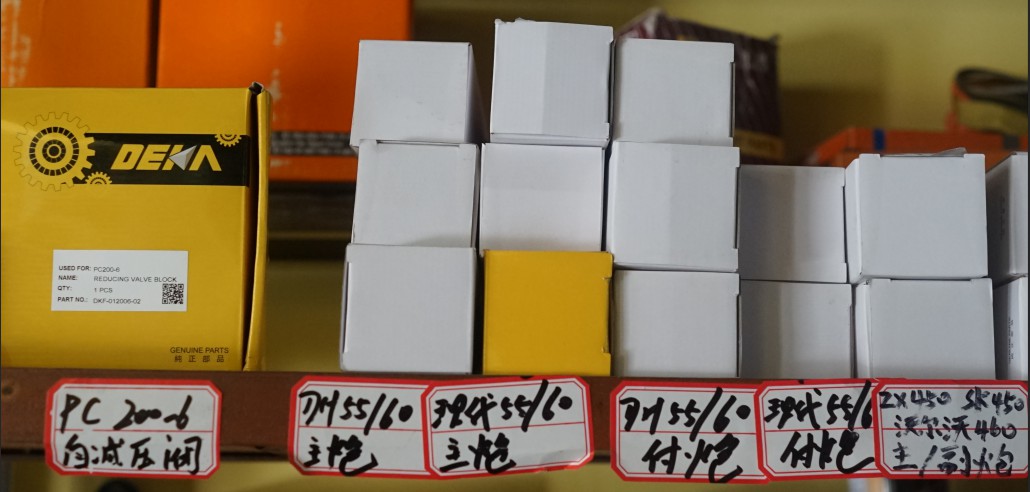 DEKA
USED FOR: PC200-6
NAME: REDUCING VALVE BLOCK
QTY: 1 PCS
PART NO.: DKF-012006-02
GENUINE PARTS
纯正部品
PC 200-6
自减压阀
DH 55/60
主炮
现代 55/60
主炮
DH 55/60
付炮
现代 55/6
付炮
ZX450 SK450
沃尔沃 460
主/副炮